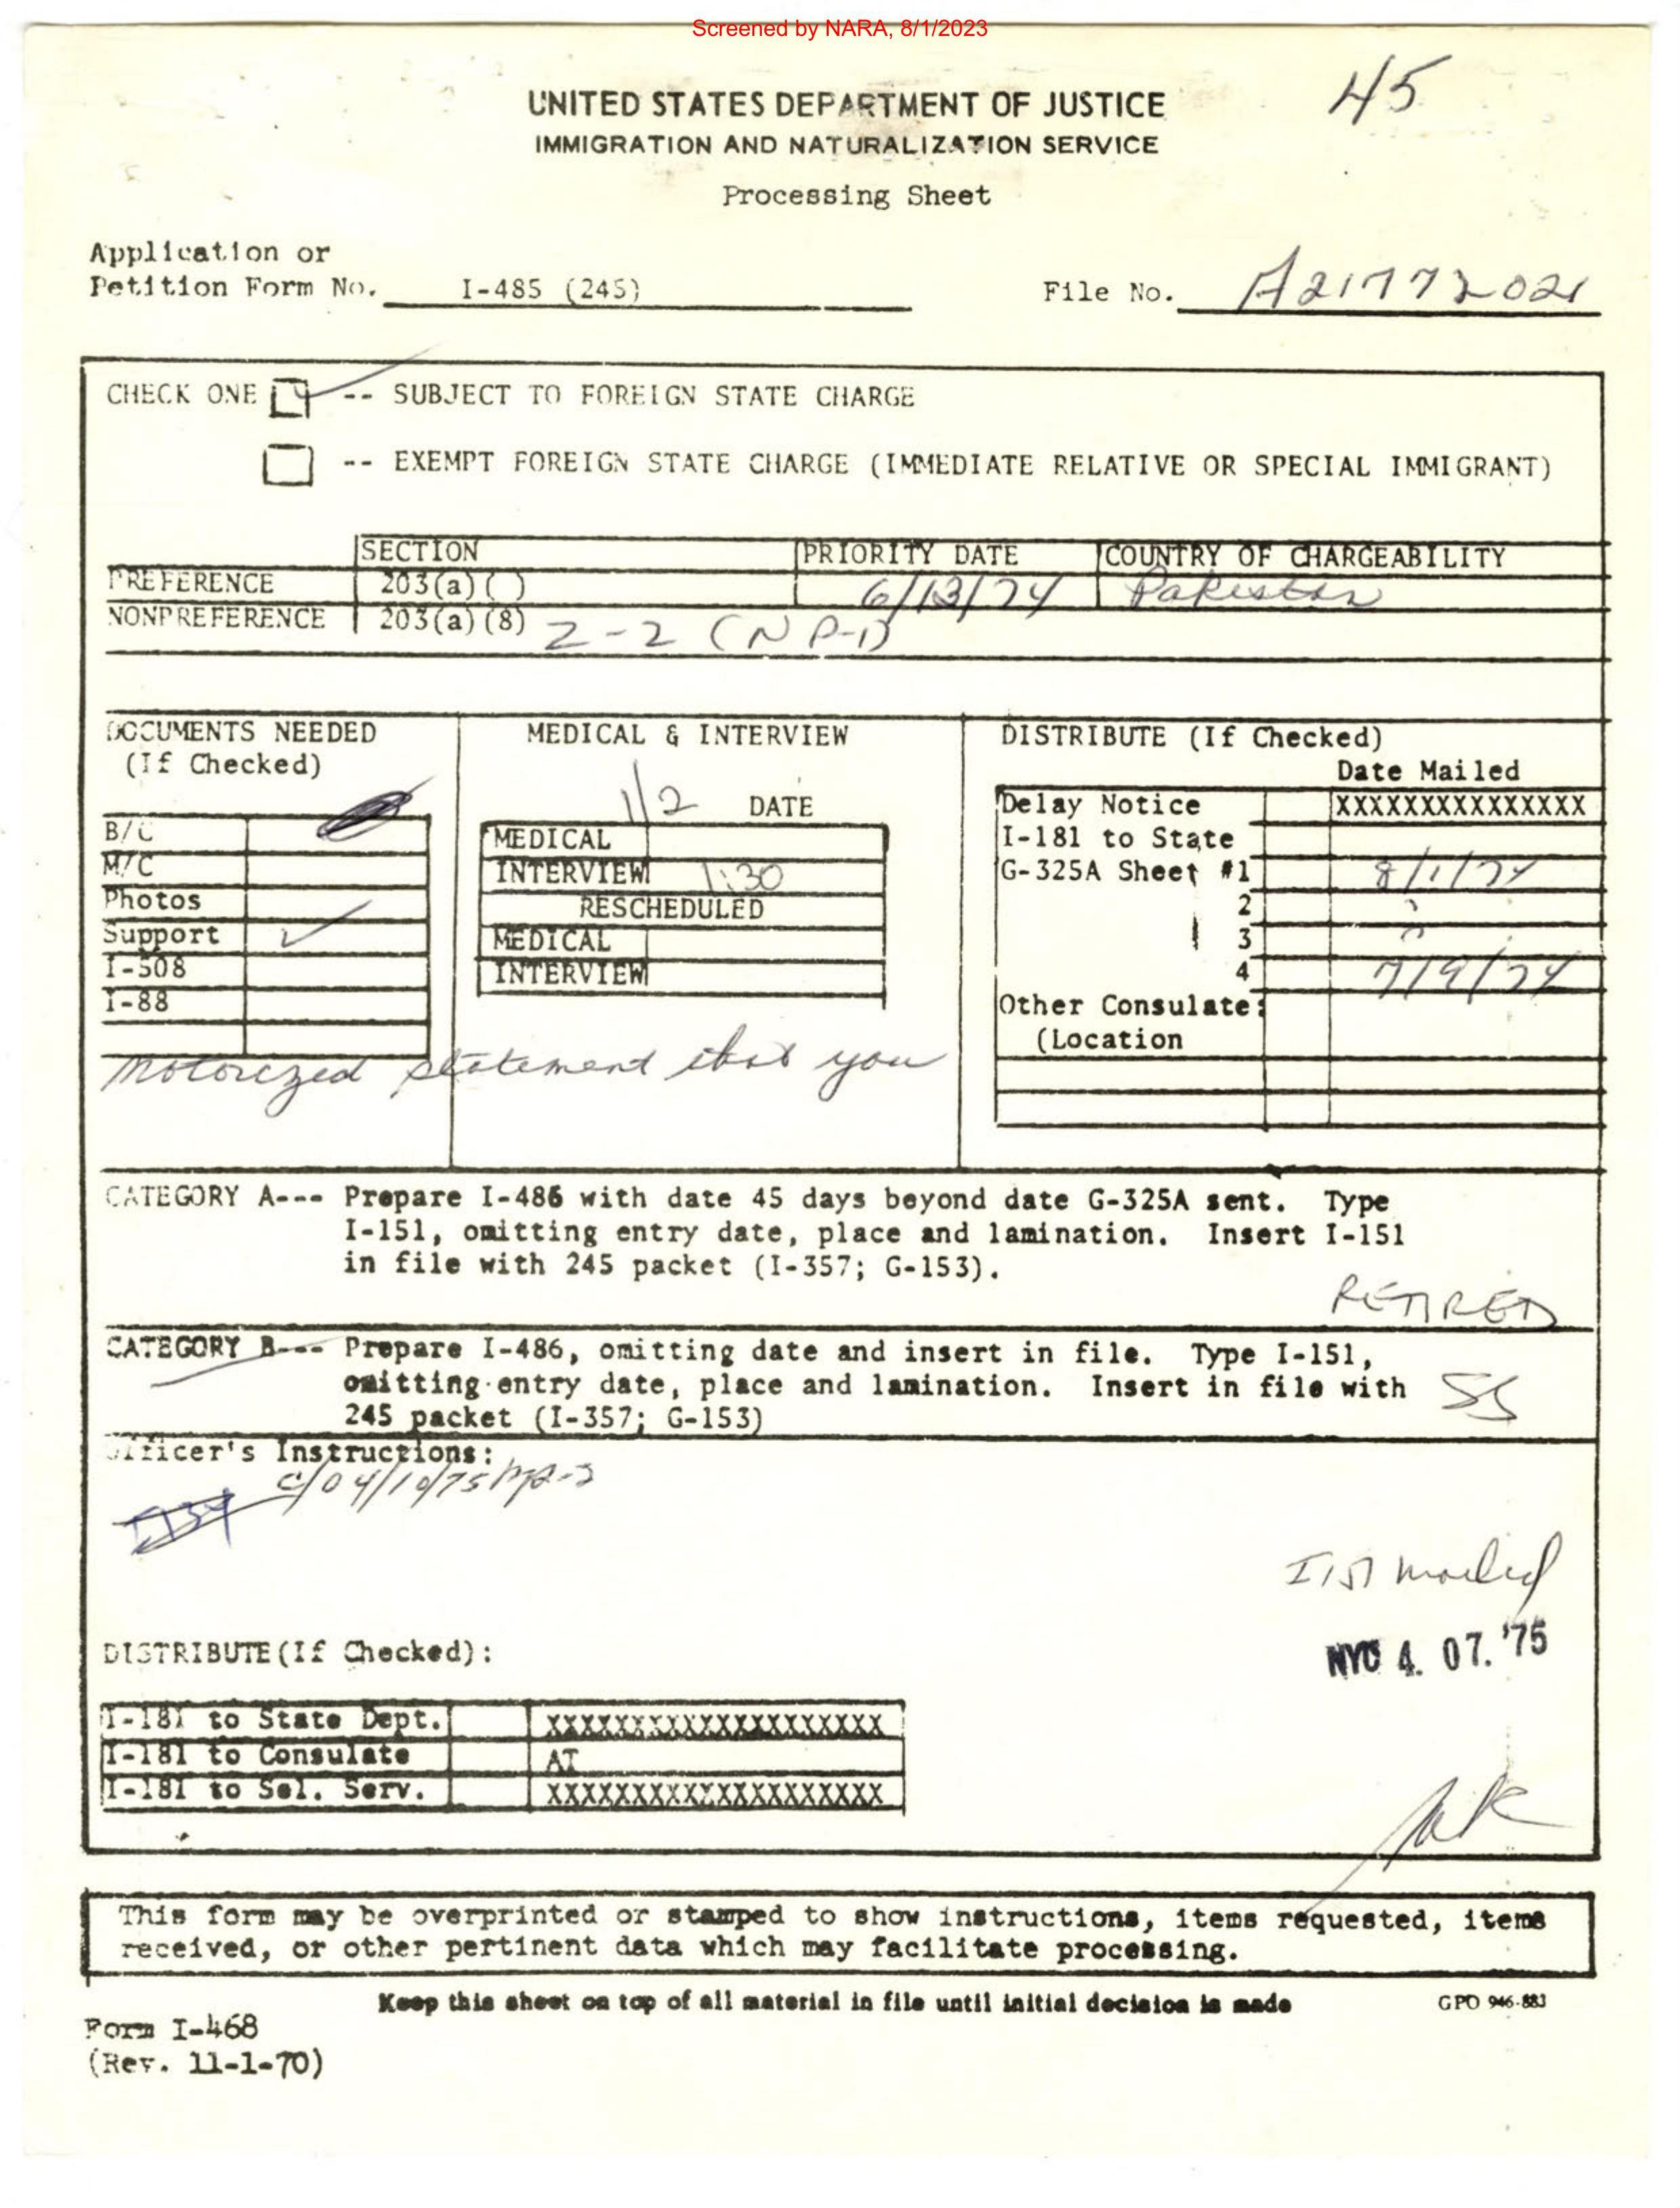 Screened by NARA, 8/1/2023
45
UNITED STATES DEPARTMENT OF JUSTICE
IMMIGRATION AND NATURALIZATION SERVICE
Processing Sheet
Application or
Petition Form No. I-485 (245)
File No. A21772021
CHECK ONE -- SUBJECT TO FOREIGN STATE CHARGE
-- EXEMPT FOREIGN STATE CHARGE (IMMEDIATE RELATIVE OR SPECIAL IMMIGRANT)
SECTION PRIORITY DATE COUNTRY OF CHARGEABILITY
PREFERENCE 203(a)( ) 6/13/74 Pakistan
NONPREFERENCE 203(a)(8) 2-2 (NP-1)
DOCUMENTS NEEDED
(If Checked)
B/C
M/C
Photos
Support ✓
I-508
I-88
MEDICAL & INTERVIEW
1/2 DATE
MEDICAL
INTERVIEW 1:30
RESCHEDULED
MEDICAL
INTERVIEW
DISTRIBUTE (If Checked)
Date Mailed
Delay Notice XXXXXXXXXXXXXXX
I-181 to State
G-325A Sheet #1 8/1/74
2
3
4 7/9/74
Other Consulate:
(Location
Notorized statement that you
CATEGORY A--- Prepare I-486 with date 45 days beyond date G-325A sent. Type
I-151, omitting entry date, place and lamination. Insert I-151
in file with 245 packet (I-357; G-153).
RETIRED
CATEGORY B--- Prepare I-486, omitting date and insert in file. Type I-151,
omitting entry date, place and lamination. Insert in file with
245 packet (I-357; G-153)
SS
Officer's Instructions:
I151 mailed
NYC 4. 07. '75
DISTRIBUTE(If Checked):
I-181 to State Dept. XXXXXXXXXXXXXXXXXXXX
I-181 to Consulate AT
I-181 to Sel. Serv. XXXXXXXXXXXXXXXXXXXX
This form may be overprinted or stamped to show instructions, items requested, items
received, or other pertinent data which may facilitate processing.
Keep this sheet on top of all material in file until initial decision is made
GPO 946-883
Form I-468
(Rev. 11-1-70)